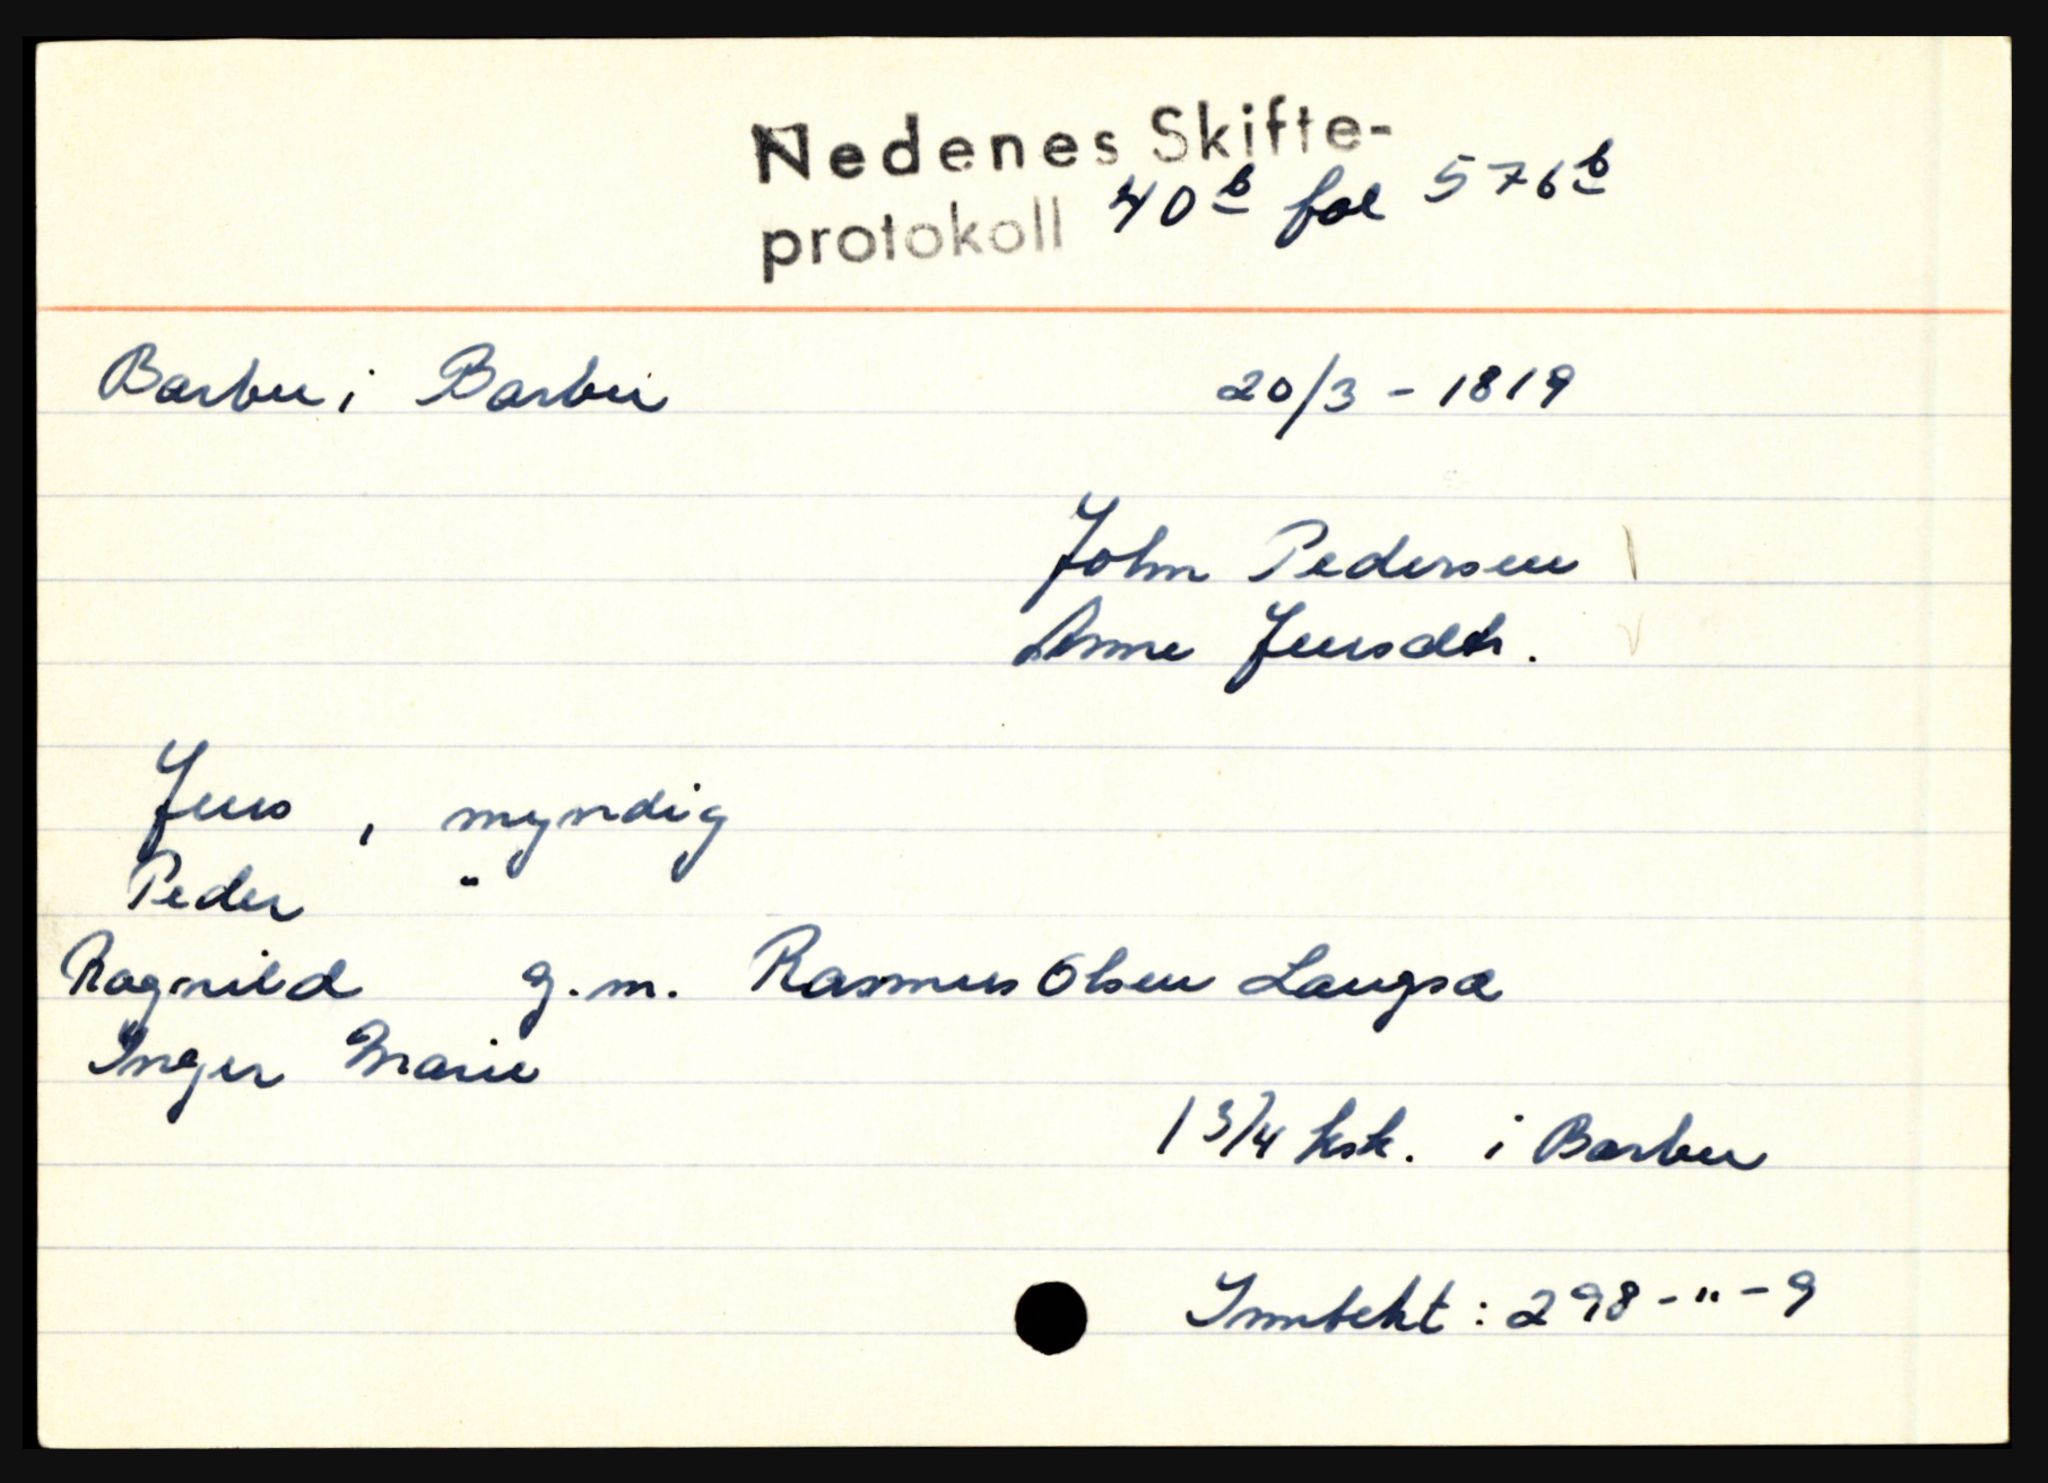 Nedenes Skifte-
protokoll 40b fol 576b
Barbu i Barbu 20/3 - 1819
John Pedersen
Anne Jensdtr.
Jens, myndig
Peder "
Ragnild g.m. Rasmus Olsen Langsæ
Inger Marie
1 3/4 ksk. i Barbu
Innbeht: 298-"-9